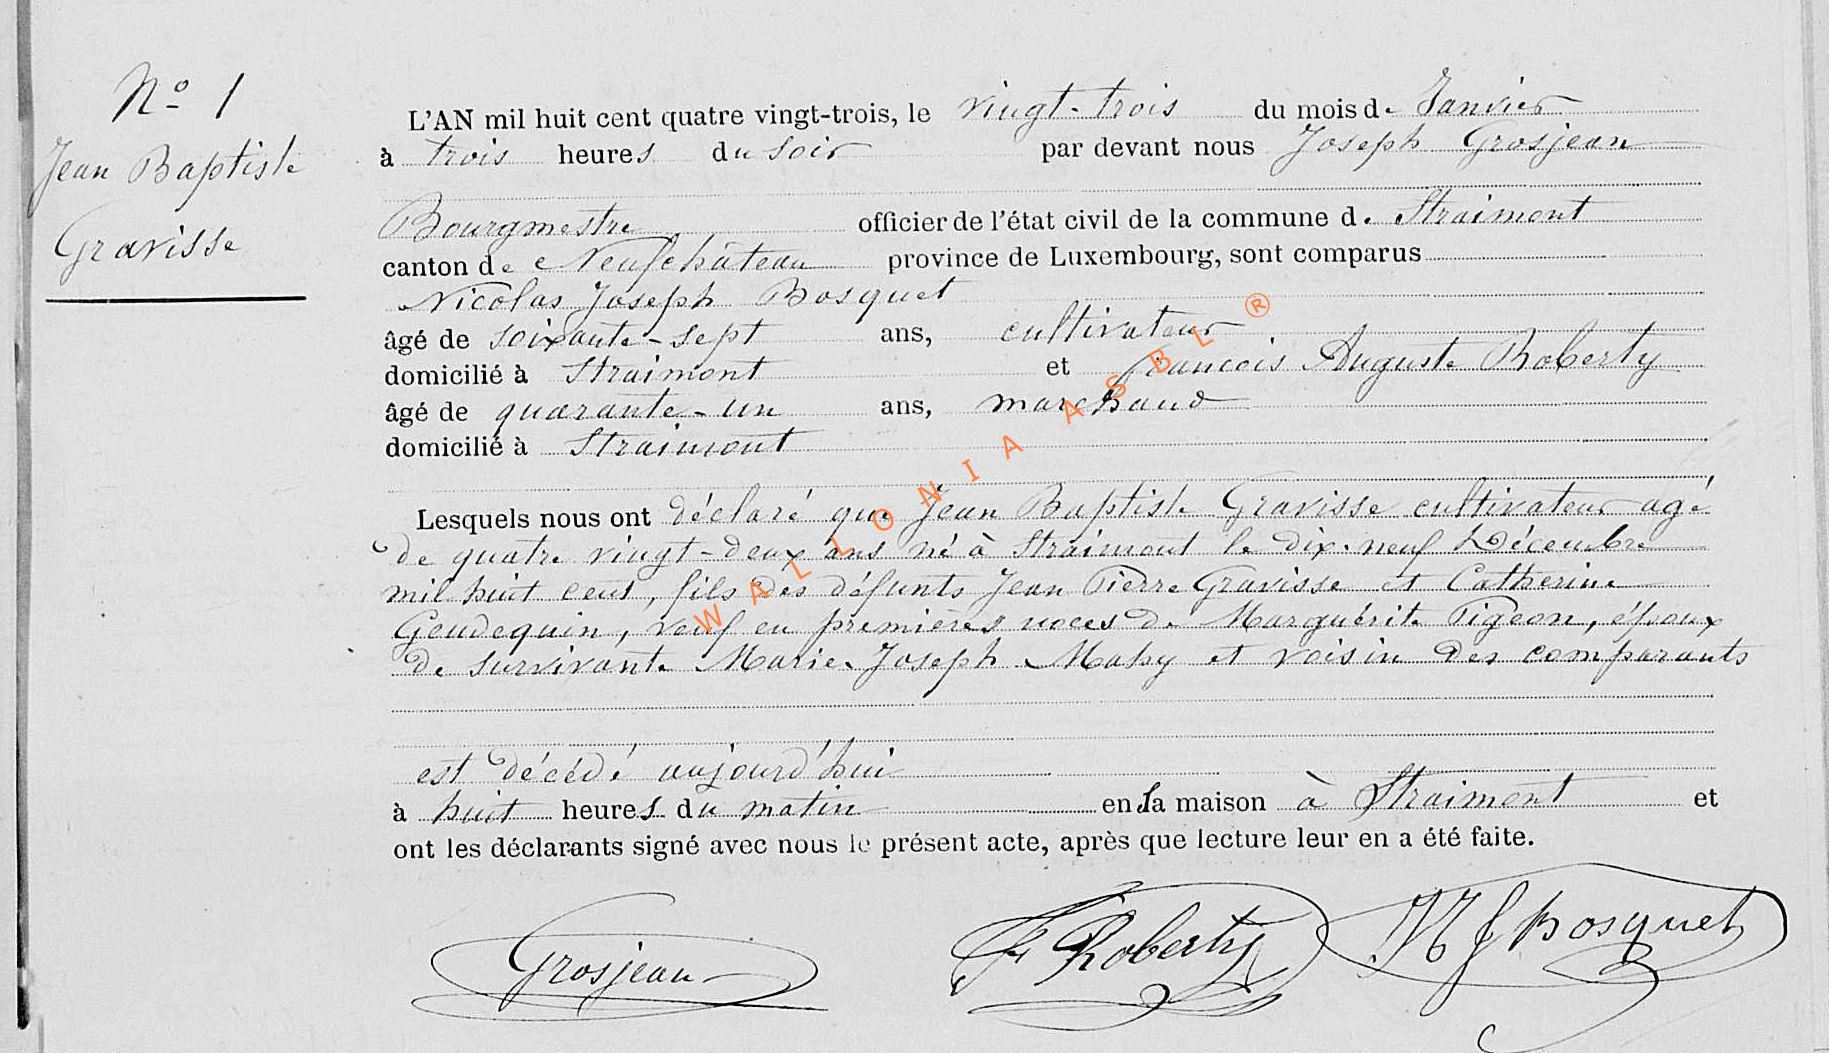 N° 1
Jean Baptiste
Gravisse
L'AN mil huit cent quatre vingt-trois, le vingt-trois du mois de Janvier
à trois heures du soir par devant nous Joseph Grosjean
Bourgmestre officier de l'état civil de la commune de Straimont
canton de Neufchâteau province de Luxembourg, sont comparus
Nicolas Joseph Bosquet
âgé de soixante-sept ans, cultivateur
domicilié à Straimont et François Auguste Roberty
âgé de quarante-un ans, marchand
domicilié à Straimont
Lesquels nous ont déclaré que Jean Baptiste Gravisse cultivateur agé
de quatre vingt-deux ans né à Straimont le dix-neuf Décembre
mil huit cent, fils des défunts Jean Pierre Gravisse et Catherine
Gendequin, veuf en premières noces de Marguérite Pigeon, époux
de survivante Marie Joseph Mahy et voisin des comparants
est décédé aujourd'hui
à huit heures du matin en sa maison à Straimont et
ont les déclarants signé avec nous le présent acte, après que lecture leur en a été faite.
Grosjean Fr Roberty NJ Bosquet
WALLONIA ASBL ®